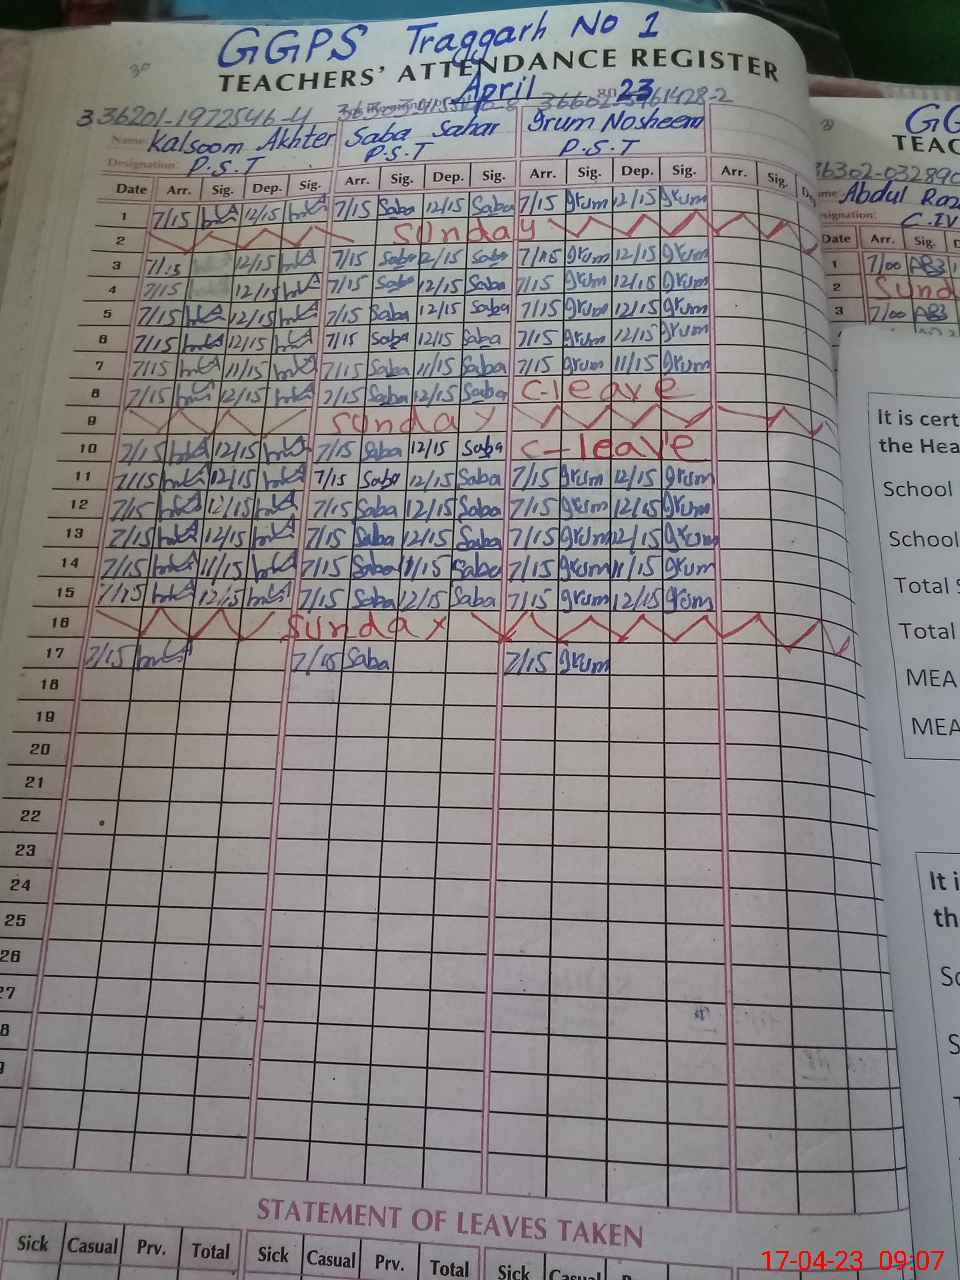 GGPS Traggarh No 1
TEACHERS' ATTENDANCE REGISTER
April 23
36201-1972546-4
Name Kalsoom Akhter Saba Sahar Irum Nosheem
Designation: P.S.T P.S.T P.S.T
Date Arr. Sig. Dep. Sig. Arr. Sig. Dep. Sig. Arr. Sig. Dep. Sig. Arr. Sig.
1 7/15 12/15 7/15 Saba 12/15 Saba 7/15 Irum 12/15 Irum
2 Sunday
3 7/15 12/15 7/15 Saba 12/15 Saba 7/15 Irum 12/15 Irum
4 7/15 12/15 7/15 Saba 12/15 Saba 7/15 Irum 12/15 Irum
5 7/15 12/15 7/15 Saba 12/15 Saba 7/15 Irum 12/15 Irum
6 7/15 12/15 7/15 Saba 12/15 Saba 7/15 Irum 12/15 Irum
7 7/15 11/15 7/15 Saba 11/15 Saba 7/15 Irum 11/15 Irum
8 7/15 12/15 7/15 Saba 12/15 Saba C-leave
9 Sunday
10 7/15 12/15 7/15 Saba 12/15 Saba C-leave
11 7/15 12/15 7/15 Saba 12/15 Saba 7/15 Irum 12/15 Irum
12 7/15 12/15 7/15 Saba 12/15 Saba 7/15 Irum 12/15 Irum
13 7/15 12/15 7/15 Saba 12/15 Saba 7/15 Irum 12/15 Irum
14 7/15 11/15 7/15 Saba 11/15 Saba 7/15 Irum 11/15 Irum
15 7/15 12/15 7/15 Saba 12/15 Saba 7/15 Irum 12/15 Irum
16 Sunday
17 7/15 7/15 Saba 7/15 Irum
18
19
20
21
22
23
24
25
26
27
STATEMENT OF LEAVES TAKEN
Sick Casual Prv. Total Sick Casual Prv. Total Sick Casual
Abdul
C.IV
Date Arr. Sig.
1 7/00
2 Sund
3 7/00
It is cert
the Hea
School
School
Total
Total
MEA
MEA
It i
th
17-04-23 09:07